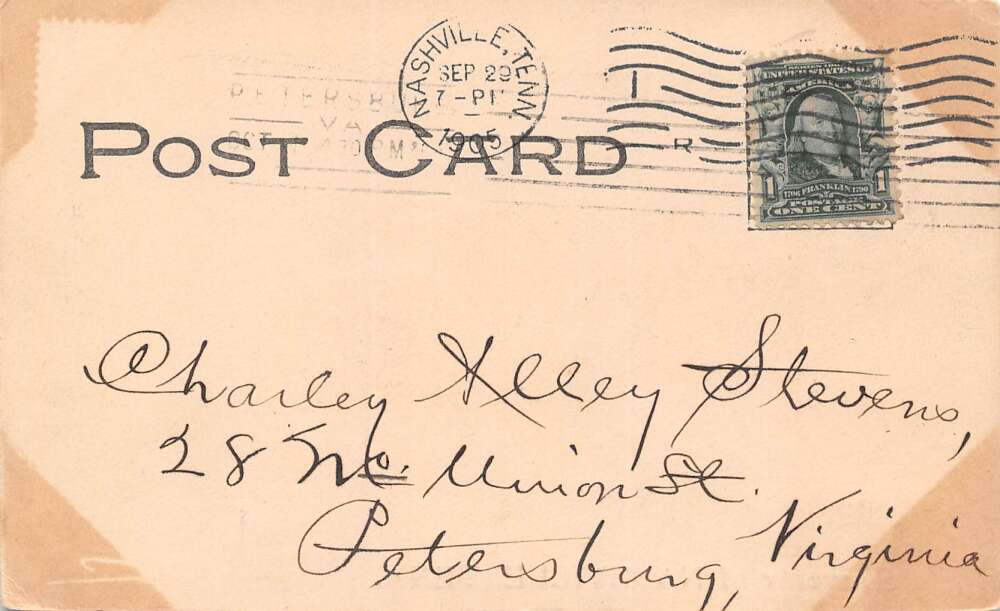 NASHVILLE, TENN.
SEP 29
7-P
1905
PETERSB
VA.
OCT
30 PM
POST CARD
R
SERIES 1902
UNITED STATES OF
AMERICA
1 1706 FRANKLIN 1790 1
POSTAGE
ONE CENT
Charley Alley Stevens,
28 No. Union St.
Petersburg, Virginia